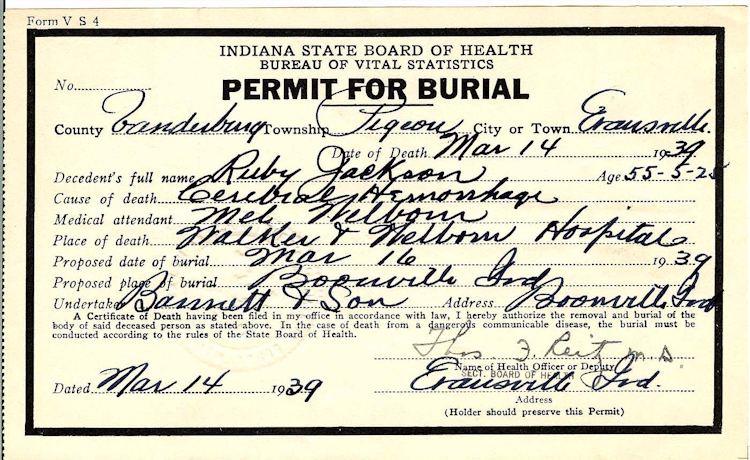 Form V S 4
INDIANA STATE BOARD OF HEALTH
BUREAU OF VITAL STATISTICS
No. PERMIT FOR BURIAL
County Vanderburg Township Pigeon City or Town Evansville.
Date of Death Mar 14 1939
Decedent's full name Ruby Jackson Age 55-5-25
Cause of death Cerebral Hemorrhage
Medical attendant Mel Welborn
Place of death Walker & Welborn Hospital
Proposed date of burial Mar 16 1939
Proposed place of burial Boonville Ind
Undertaker & Son Address Boonville Ind
A Certificate of Death having been filed in my office in accordance with law, I hereby authorize the removal and burial of the
body of said deceased person as stated above. In the case of death from a dangerous communicable disease, the burial must be
conducted according to the rules of the State Board of Health.
Thos. F. Reitz M.D.
Name of Health Officer or Deputy
SECT. BOARD OF HEALTH
Dated Mar 14 1939 Evansville Ind.
Address
(Holder should preserve this Permit)